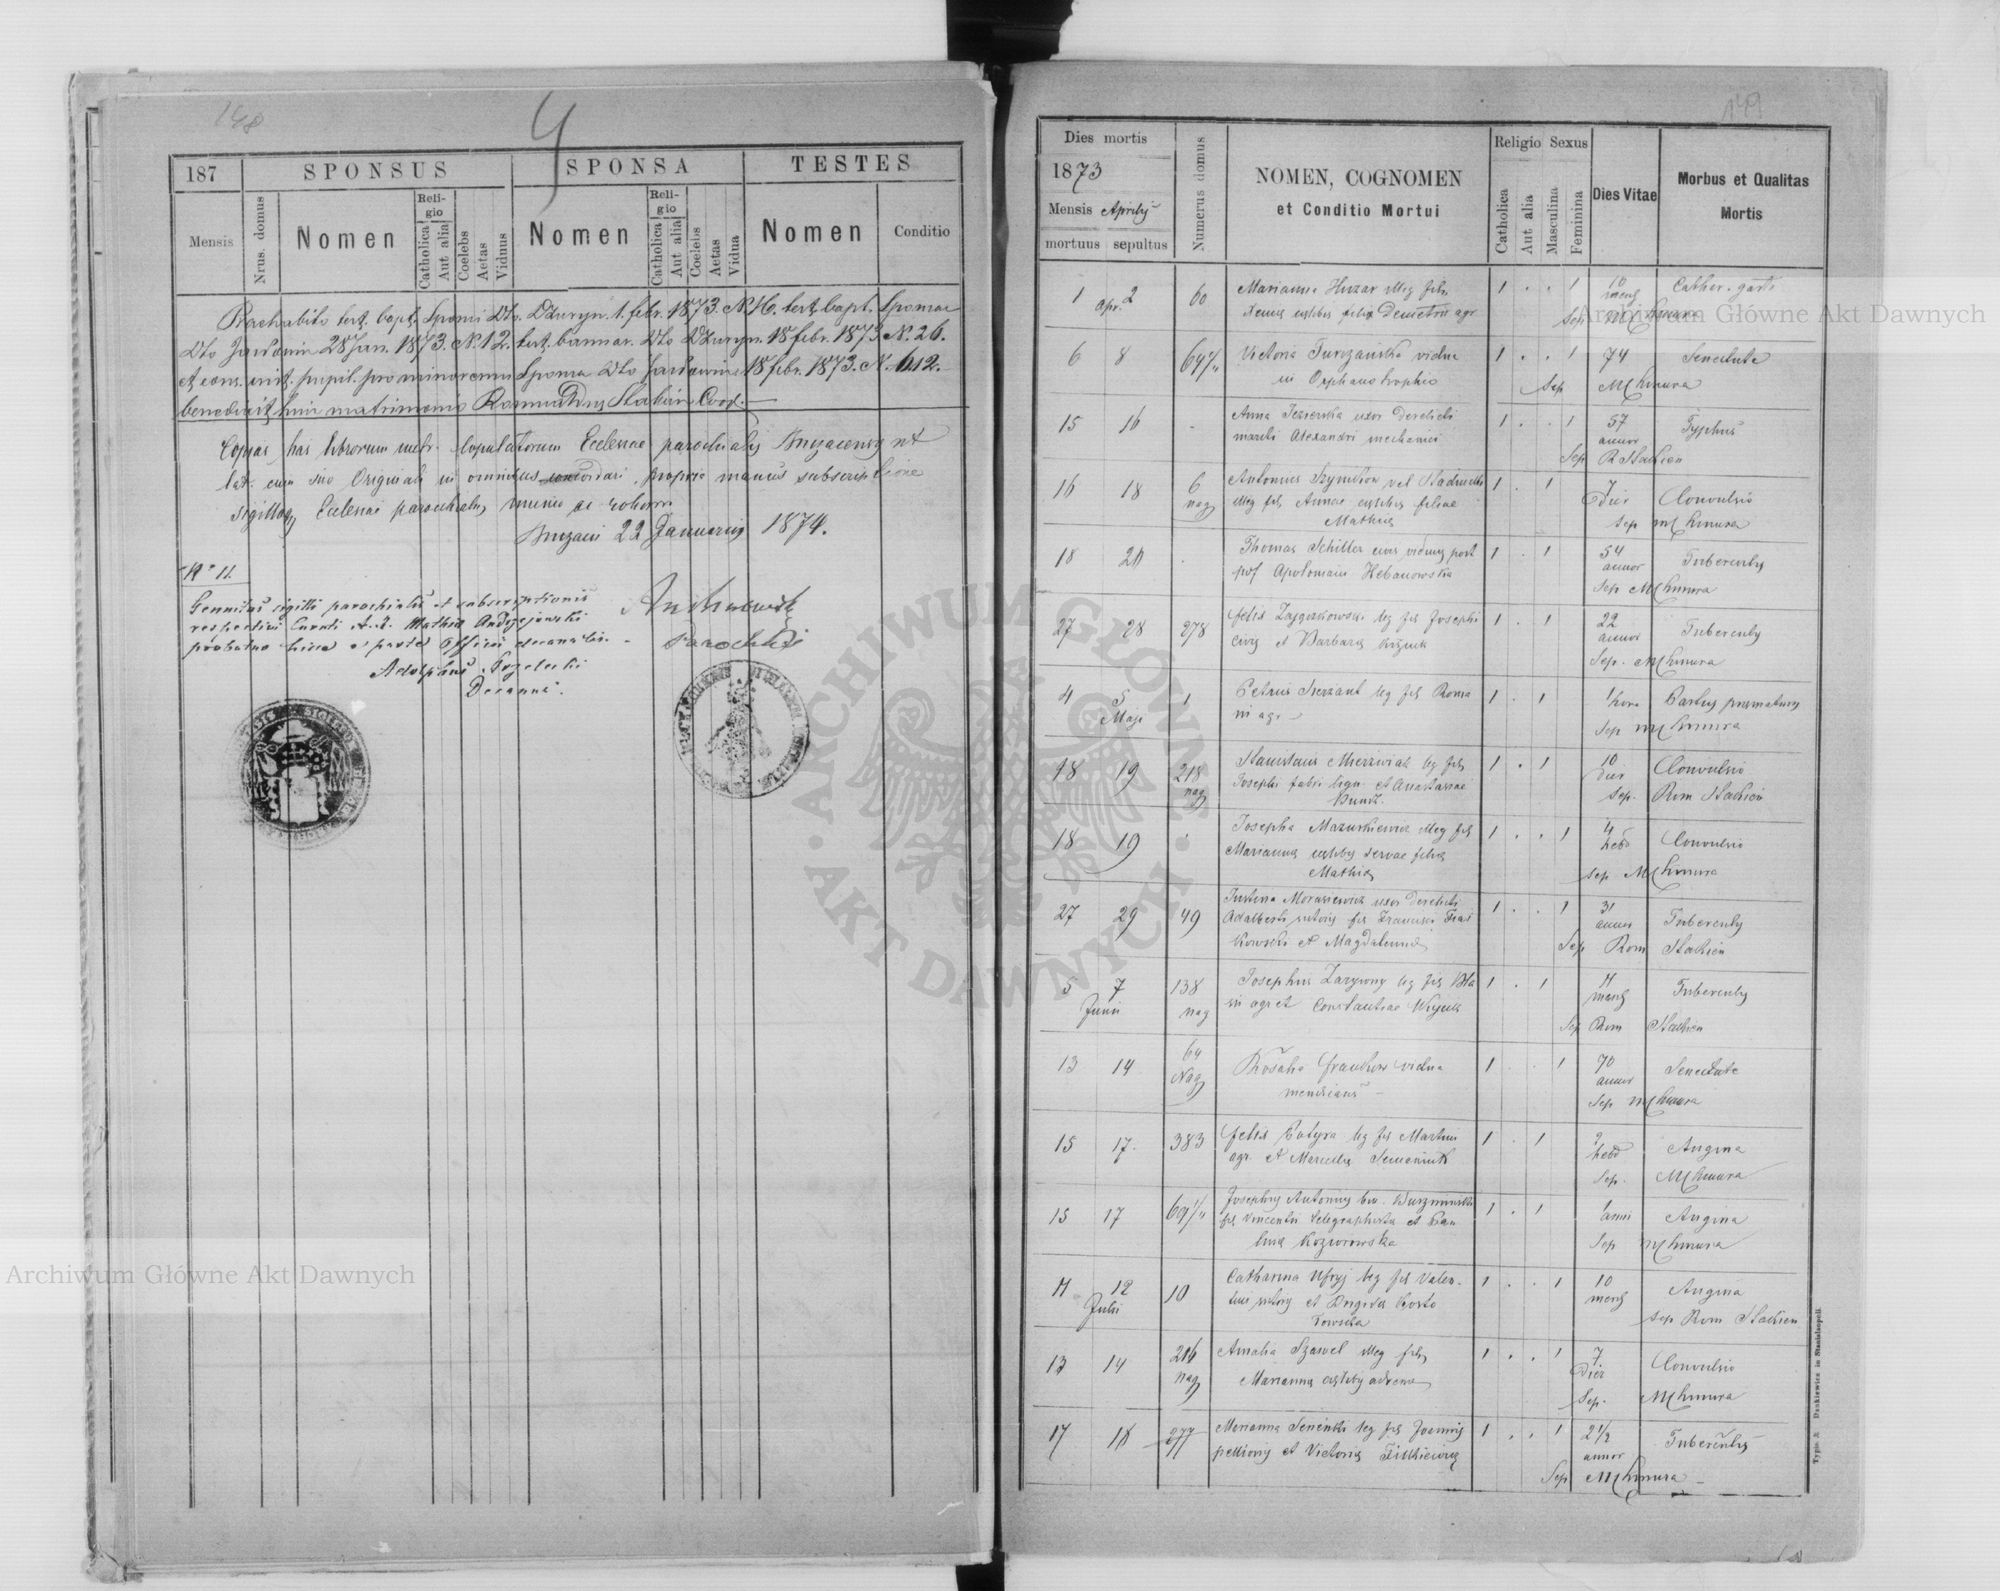 148
4
187
SPONSUS
SPONSA
TESTES
Mensis
Nrus. domus
Nomen
Reli-
gio
Catholica
Aut alia
Coelebs
Aetas
Viduus
Nomen
Reli-
gio
Catholica
Aut alia
Coelebs
Aetas
Vidua
Nomen
Conditio
test. bapt. Sponsi dto Dzuryn 1. febr. 1873. N. 16. test. bapt. Sponsae
dto Jazłowiec 28 Jan. 1873. N. 12. test. bannor. dto Dzuryn 18 febr. 1873 N. 26.
pupil. pro minorenni Sponsa dto Jazłowiec 18 febr. 1873. N. 612.
benedixit huic matrimonio Romualdus Stahień Coop.
Copias has librorum metr. Copulatorum Ecclesiae parochialis Buczacensis rit
lat. cum suo Originali in omnibus concordari, propria manus subscriptione
sigilloq Ecclesiae parochialis munio ac roboro
Buczacii 22 Januarii 1874.
N° 11.
Genuitas sigilli parochialis et subscriptionis
respectivi Curati A. R. Mathia Andrzejowski
probatur hisce a parte Officii decanalis.
Adolphus
Decanus.
Parochus
149
Dies mortis
1873
Mensis Aprilis
mortuus sepultus
Numerus domus
NOMEN, COGNOMEN
et Conditio Mortui
Religio
Sexus
Catholica
Aut alia
Masculina
Feminina
Dies Vitae
Morbus et Qualitas
Mortis
1 Apr. 2 60 Marianna Huzar illeg fil 1 . . 1 10 mens Cathar. gastr
Xeniae caelibis filiae Demetrii agr Sep M Chmura
6 8 64 1/" Victoria Turczańska vidua 1 . . 1 74 Senectute
in Orphanotrophio Sep M Chmura
15 16 - Anna Jezierska uxor derelicti 1 . . 1 57 annor Typhus
mariti Alexandri mechanici Sep R Stahień
16 18 6 nag Antonius Szymków vel Stadnicki 1 . 1 7 dier Convulsio
illeg fil Annae caelibis filiae
Mathiae Sep M Chmura
18 20 . Thomas Schiller civis viduus post 1 . 1 54 annor Tuberculis
pof Apoloniam Hebanowska Sep M Chmura
27 28 278 Felix Zajączkowski leg fil Josephi 1 . 1 22 annor Tuberculis
civis et Barbarae Sep. M Chmura
4 5 Maji 1 Petrus leg fil Roma 1 . 1 1 hora Partus praematurus
ni agr Sep M Chmura
18 19 218 nag Stanislaus Mierzwiak leg fil 1 . 1 10 dier Convulsio
Josephi fabri lign et Anastasiae
Sep. Rom Stahień
18 19 . Josepha Mazurkiewicz illeg fil 1 . . 1 4 hebd Convulsio
Mariannae caelibis servae filiae
Mathiae Sep M Chmura
27 29 49 Justina Morasiewicz uxor derelicti 1 . . 1 31 annor Tuberculis
Adalberti sutoris fil Francisci
kowski et Magdalenae Sep Rom Stahień
5 7 Junii 138 nag Josephus Zarzycny leg fil Bla 1 . 1 11 mens Tuberculis
sii agr et Constantiae Sep Rom Stahień
13 14 64 Nag Rosalia Franków vidua 1 . . 1 70 annor Senectute
mendicans Sep M Chmura
15 17. 383 Felix Potyra leg fil Martini 1 . 1 2 hebd Angina
agr. et Marcellae Semeniuk Sep. M Chmura
15 17 691/" Josephus Antonius bin. 1 . 1 1 anni Angina
fil Vincentii telegraphistae et Pau
linae Koziorowska Sep M Chmura
11 12 Julii 10 Catharina Ufryj leg fil Valen- 1 . . 1 10 mens Angina
tini sutoris et Brigidae Kosto
kowska Sep Rom Stahień
13 14 216 nag Amalia Szawel illeg fil 1 . . 1 7 dier Convulsio
Mariannae caelibis advenae Sep. M Chmura
17 18 277 Marianna leg fil Joannis 1 . . 1 2 1/2 annor Tuberculis
pellionis et Victoriae Sep M Chmura
Typis J. Dankiewicz in Stanislaopoli.
Archiwum Główne Akt Dawnych
Archiwum Główne Akt Dawnych
ARCHIWUM GŁÓWNE AKT DAWNYCH